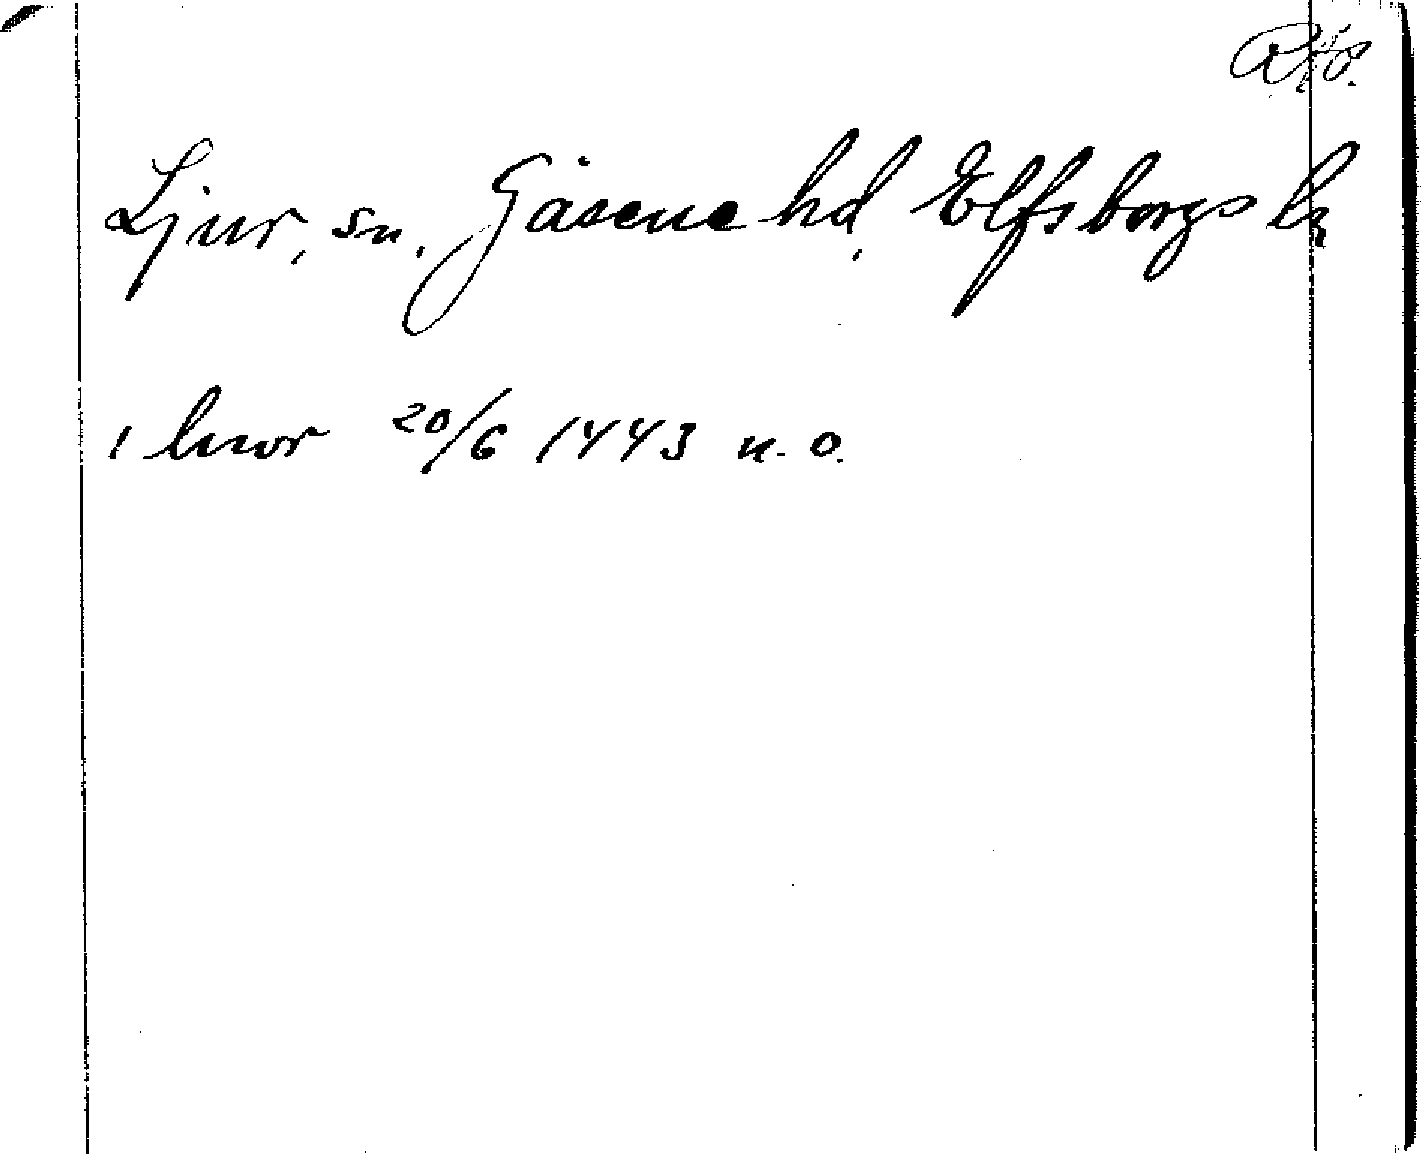 Ljur, sn. Gäsene hd, Elfsborgs l
i liwor 20/6 1443 n. o.